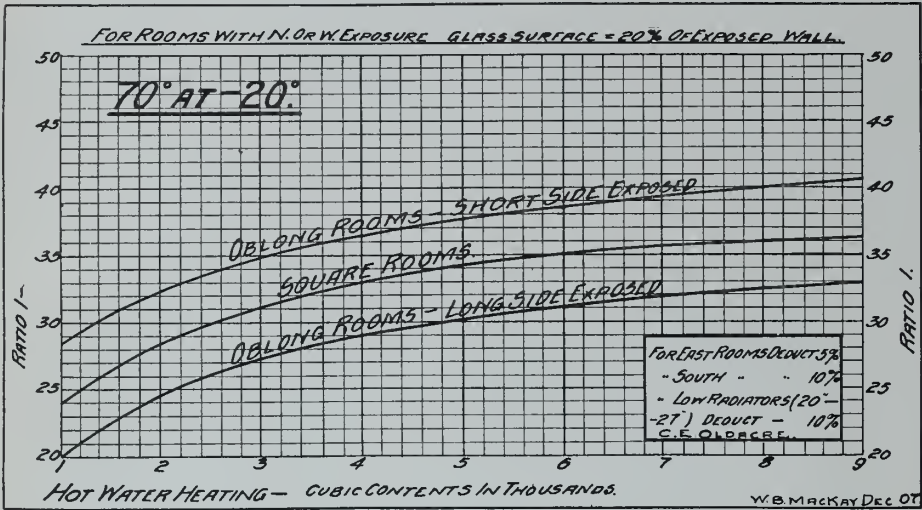 FOR ROOMS WITH N. OR W. EXPOSURE GLASS SURFACE = 20% OF EXPOSED WALL.
70° AT -20°.
50
45
40
35
30
25
20
RATIO 1-
50
45
40
35
30
25
20
RATIO 1.
OBLONG ROOMS - SHORT SIDE EXPOSED
SQUARE ROOMS.
OBLONG ROOMS - LONG SIDE EXPOSED
FOR EAST ROOMS DEDUCT 5%
" SOUTH " " 10%
" LOW RADIATORS (20"-
-27") DEDUCT - 10%
C.E. OLDACRE.
1 2 3 4 5 6 7 8 9
HOT WATER HEATING - CUBIC CONTENTS IN THOUSANDS.
W.B. MACKAY DEC 07